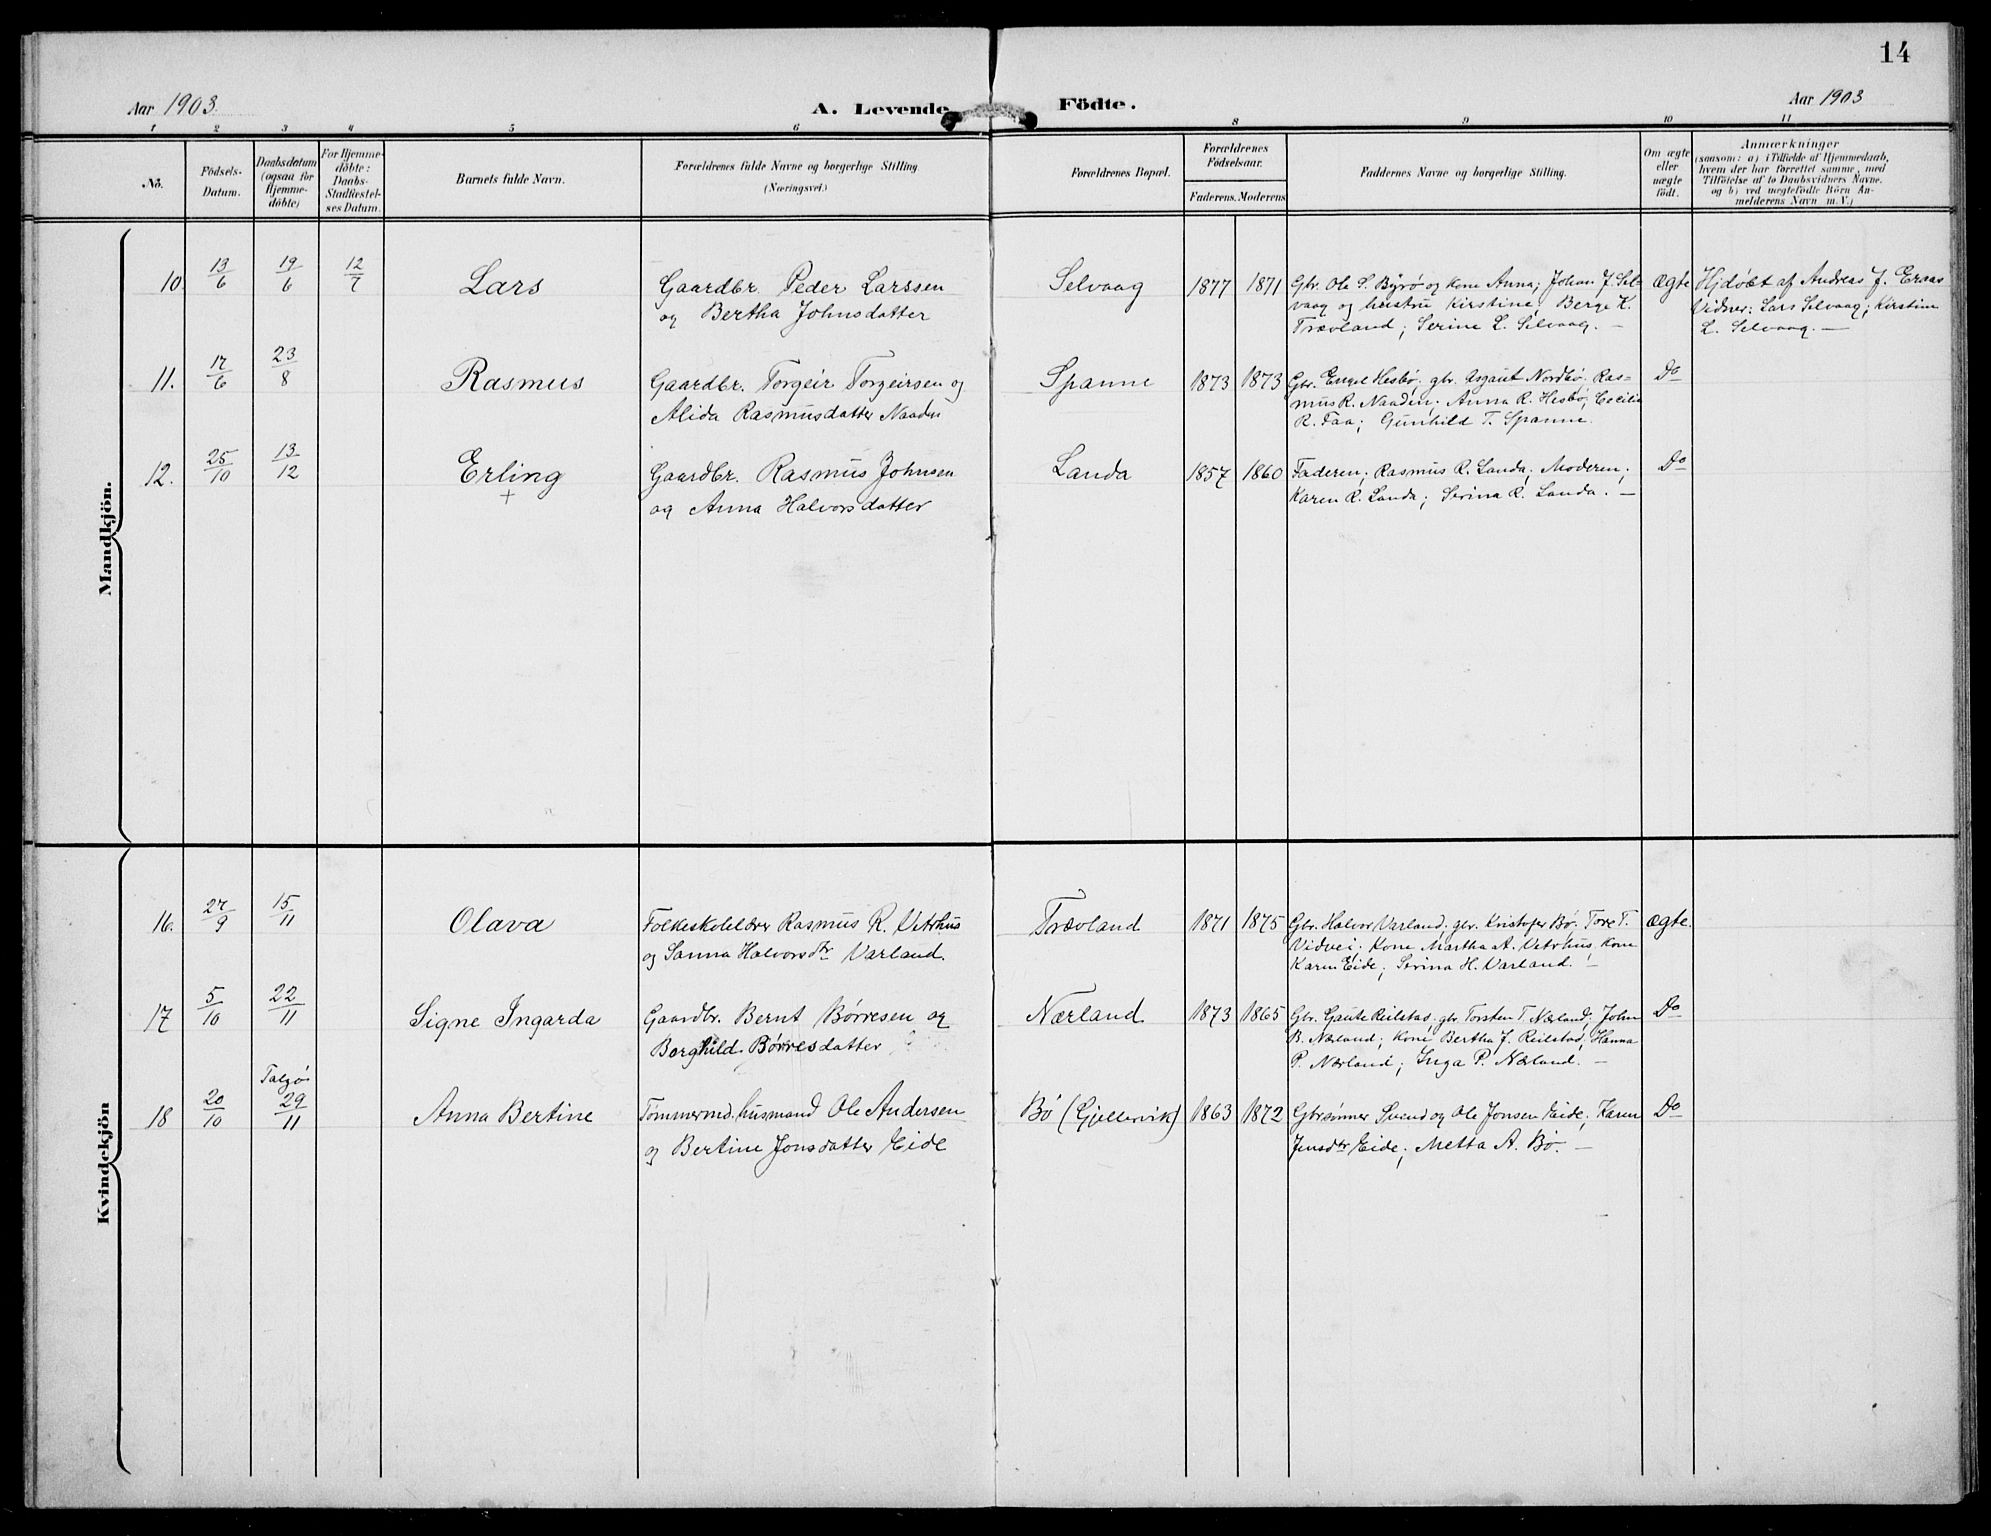 14
Aar 1903.
A. Levende
Födte.
Aar 1903
1 2 3 4 5 6 8 9 10 11
No.
Födsels-
Datum.
Daabsdatum
(ogsaa för
Hjemme-
döbte)
For Hjemme-
döbte:
Daabs-
Stadfæstel-
ses Datum
Barnets fulde Navn.
Forældrenes fulde Navne og borgerlige Stilling
(Næringsvei.)
Forældrenes Bopæl.
Forældrenes
Födselsaar.
Faderens. Moderens
Faddernes Navne og borgerlige Stilling.
Om ægte
eller
uægte
födt.
Anmærkninger
(saasom: a) i Tilfælde af Hjemmedaab,
hvem der har forrettet samme, med
Tilföielse af to Daabsvidners Navne.
og b) ved uegtefödte Börn An-
melderens Navn m. V.)
Mandkjön.
10. 13/6 19/6 12/7 Lars
Gaardbr. Peder Larssen
og Bertha Johnsdatter
Selvaag 1877 1871
Gbr. Ole S. Byrø og kone Anna; Johan J. Sel-
vaag og hustru Kirstine; Berge K.
Trævland; Serine L. Selvaag. —
Ægte
Hjdøbt af Andreas J. Eraas
Vidner: Lars Selvaag; Kirstine
L. Selvaag. —
11. 17/6 23/8 Rasmus
Gaardbr. Torgeir Torgeirsen og
Alida Rasmusdatter Naaden
Spanne 1873 1873
Gbr. Engel Hesbø; gbr. Asgaut Nordbø; Ras-
mus R. Naaden; Anna R. Hesbø; Cecilie
R. Faa; Gunhild T. Spanne.
Do
12. 25/10 13/12 Erling
+
Gaardbr. Rasmus Johnsen
og Anna Halvorsdatter
Landa 1857 1860
Faderen; Rasmus R. Landa; Moderen;
Karen R. Landa; Serina R. Landa. —
Do
Kvindekjön
16. 27/9 15/11 Olava
Folkeskolelærer Rasmus R. Vetrhus
og Sanna Halvorsdtr Varland.
Trævland 1871 1875
Gbr. Halvor Varland; gbr. Kristofer Bø; Tore T.
Vidvei; Kone Martha A. Vetrhus, kone
Karen Eide; Serina H. Varland. —
Ægte.
17 5/10 22/11 Signe Ingarda
Gaardbr. Bernt Børresen og
Borghild Børresdatter
Nærland 1873 1865
Gbr. Gaute Reilstad; gbr. Torsten T. Nærland; John
B. Nærland; Kone Bertha J. Reilstad; Hanna
P. Nærland; Inga P. Nærland. —
Do
Talgø
18 20/10 29/11 Anna Bertine
Tømmermd. husmand Ole Andersen
og Bertine Jonsdatter Eide
Bø (Gjellervik) 1863 1872
Gbrsønner Svend og Ole Jonsen Eide; Karen
Jensdtr Eide; Metta A. Bø. —
Do